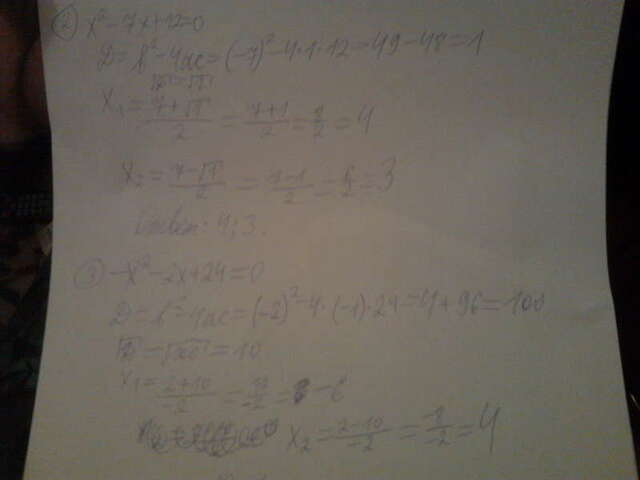 ② x² - 7x + 12 = 0
D = b² - 4ac = (-7)² - 4·1·12 = 49 - 48 = 1
√D = √1
x₁ = (7 + √1)/2 = (7 + 1)/2 = 8/2 = 4
x₂ = (7 - √1)/2 = (7 - 1)/2 = 6/2 = 3
Ответ: 4; 3.
③ -x² - 2x + 24 = 0
D = b² - 4ac = (-2)² - 4·(-1)·24 = 4 + 96 = 100
√D = √100 = 10
x₁ = (2 + 10)/-2 = 12/-2 = -6
x₂ = (2 - 10)/-2 = 8/-2 = 4